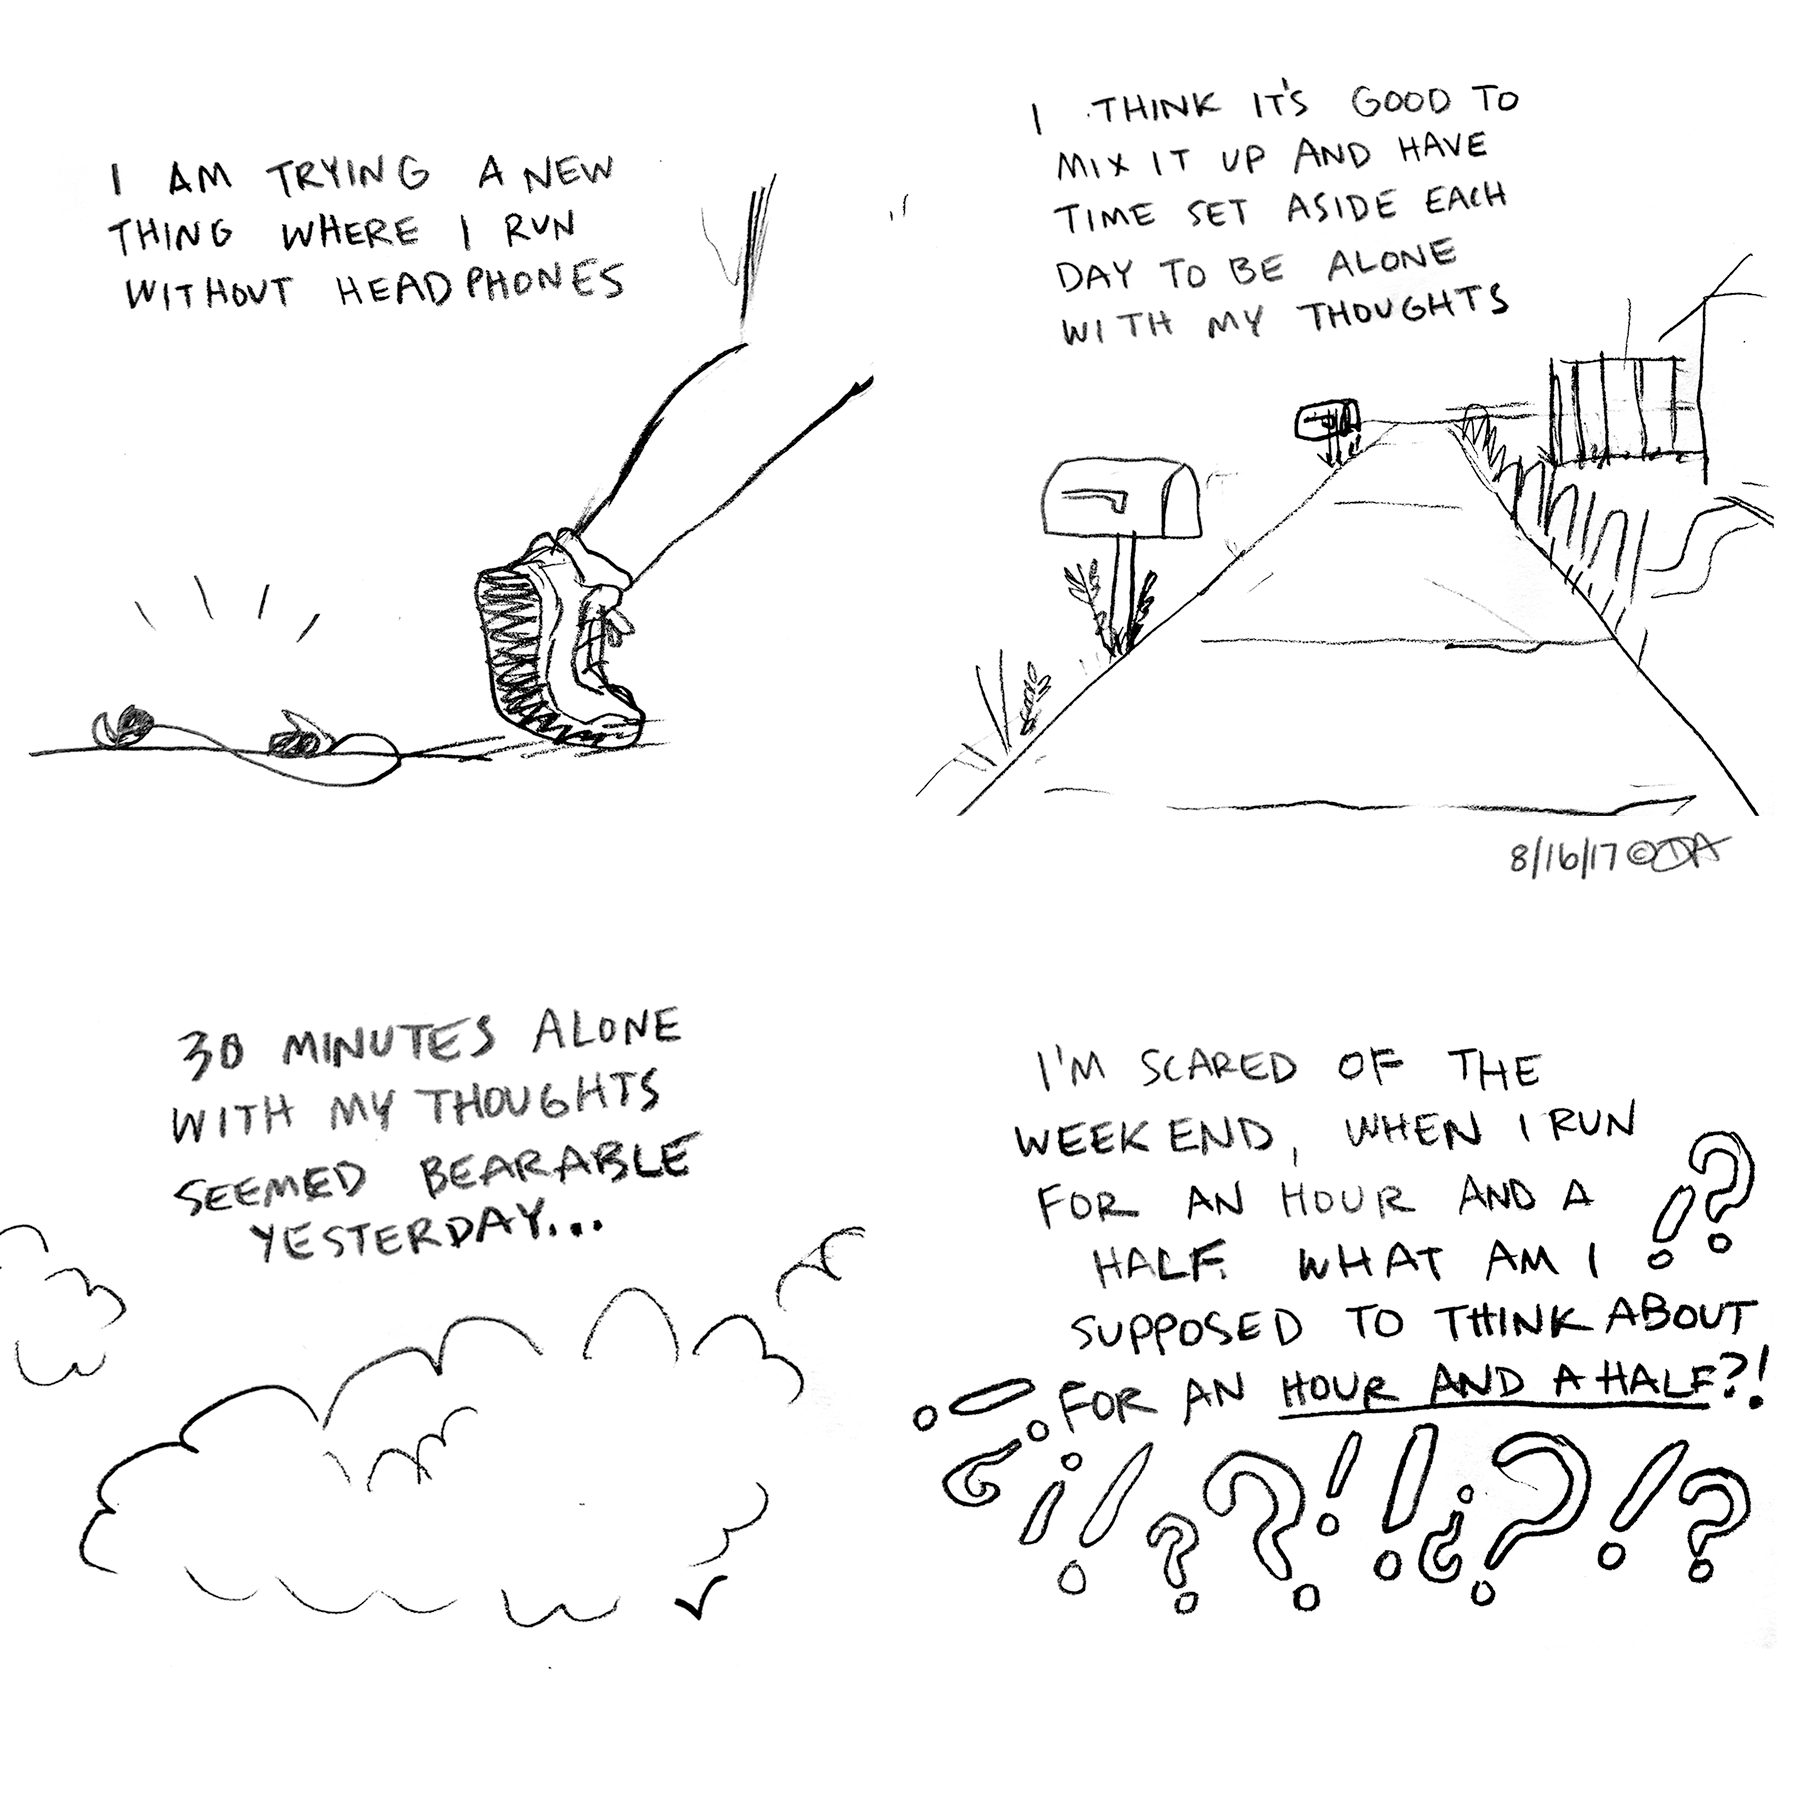 I AM TRYING A NEW
THING WHERE I RUN
WITHOUT HEADPHONES
I THINK IT'S GOOD TO
MIX IT UP AND HAVE
TIME SET ASIDE EACH
DAY TO BE ALONE
WITH MY THOUGHTS
8/16/17 © DA
30 MINUTES ALONE
WITH MY THOUGHTS
SEEMED BEARABLE
YESTERDAY...
I'M SCARED OF THE
WEEKEND, WHEN I RUN
FOR AN HOUR AND A
HALF. WHAT AM I
SUPPOSED TO THINK ABOUT
FOR AN HOUR AND A HALF?!